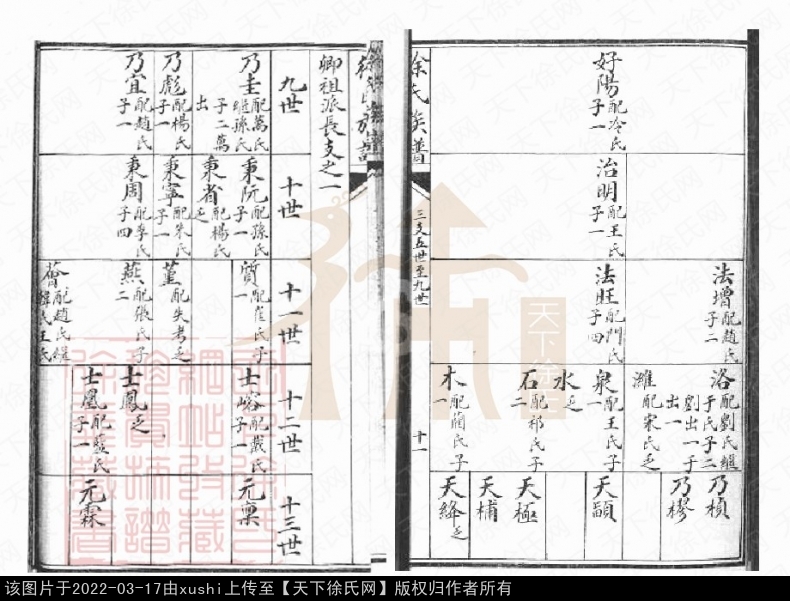 徐氏族譜
三支五世至九世
十一
好陽 配冷氏 子一
治明 配王氏 子一
法增 配趙氏 子二
法旺 配門氏 子四
洛 配劉氏繼于氏子二劉出一于出一
濰 配宋氏乏
泉 配王氏子一
水 乏
石 配祁氏子二
木 配藺氏子一
乃楨
乃樛
天顕
天極
天補
天絳 乏
徐氏族譜
卿祖派長支之一
九世
乃圭 配萬氏繼孫氏子二萬出
乃彪 配楊氏子一
乃宜 配趙氏子一
十世
秉阮 配孫氏子一
秉省 配楊氏乏
秉寧 配朱氏子一
秉周 配李氏子四
十一世
質 配崔氏子一
菫 配失考乏
燕 配張氏子二
薈 配趙氏繼韓氏王氏
十二世
士嵱 配戴氏子一
士鳳 乏
士凰 配藍氏子一
十三世
元稟
元霖
天下徐氏
该图片于2022-03-17由xushi上传至【天下徐氏网】版权归作者所有